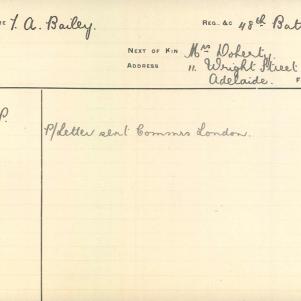 T. A. Bailey. REG. &C 48th Bat
NEXT OF KIN Mrs Doherty.
ADDRESS 11. Wright Street
Adelaide.
P.
P/Letter sent Commrs London.